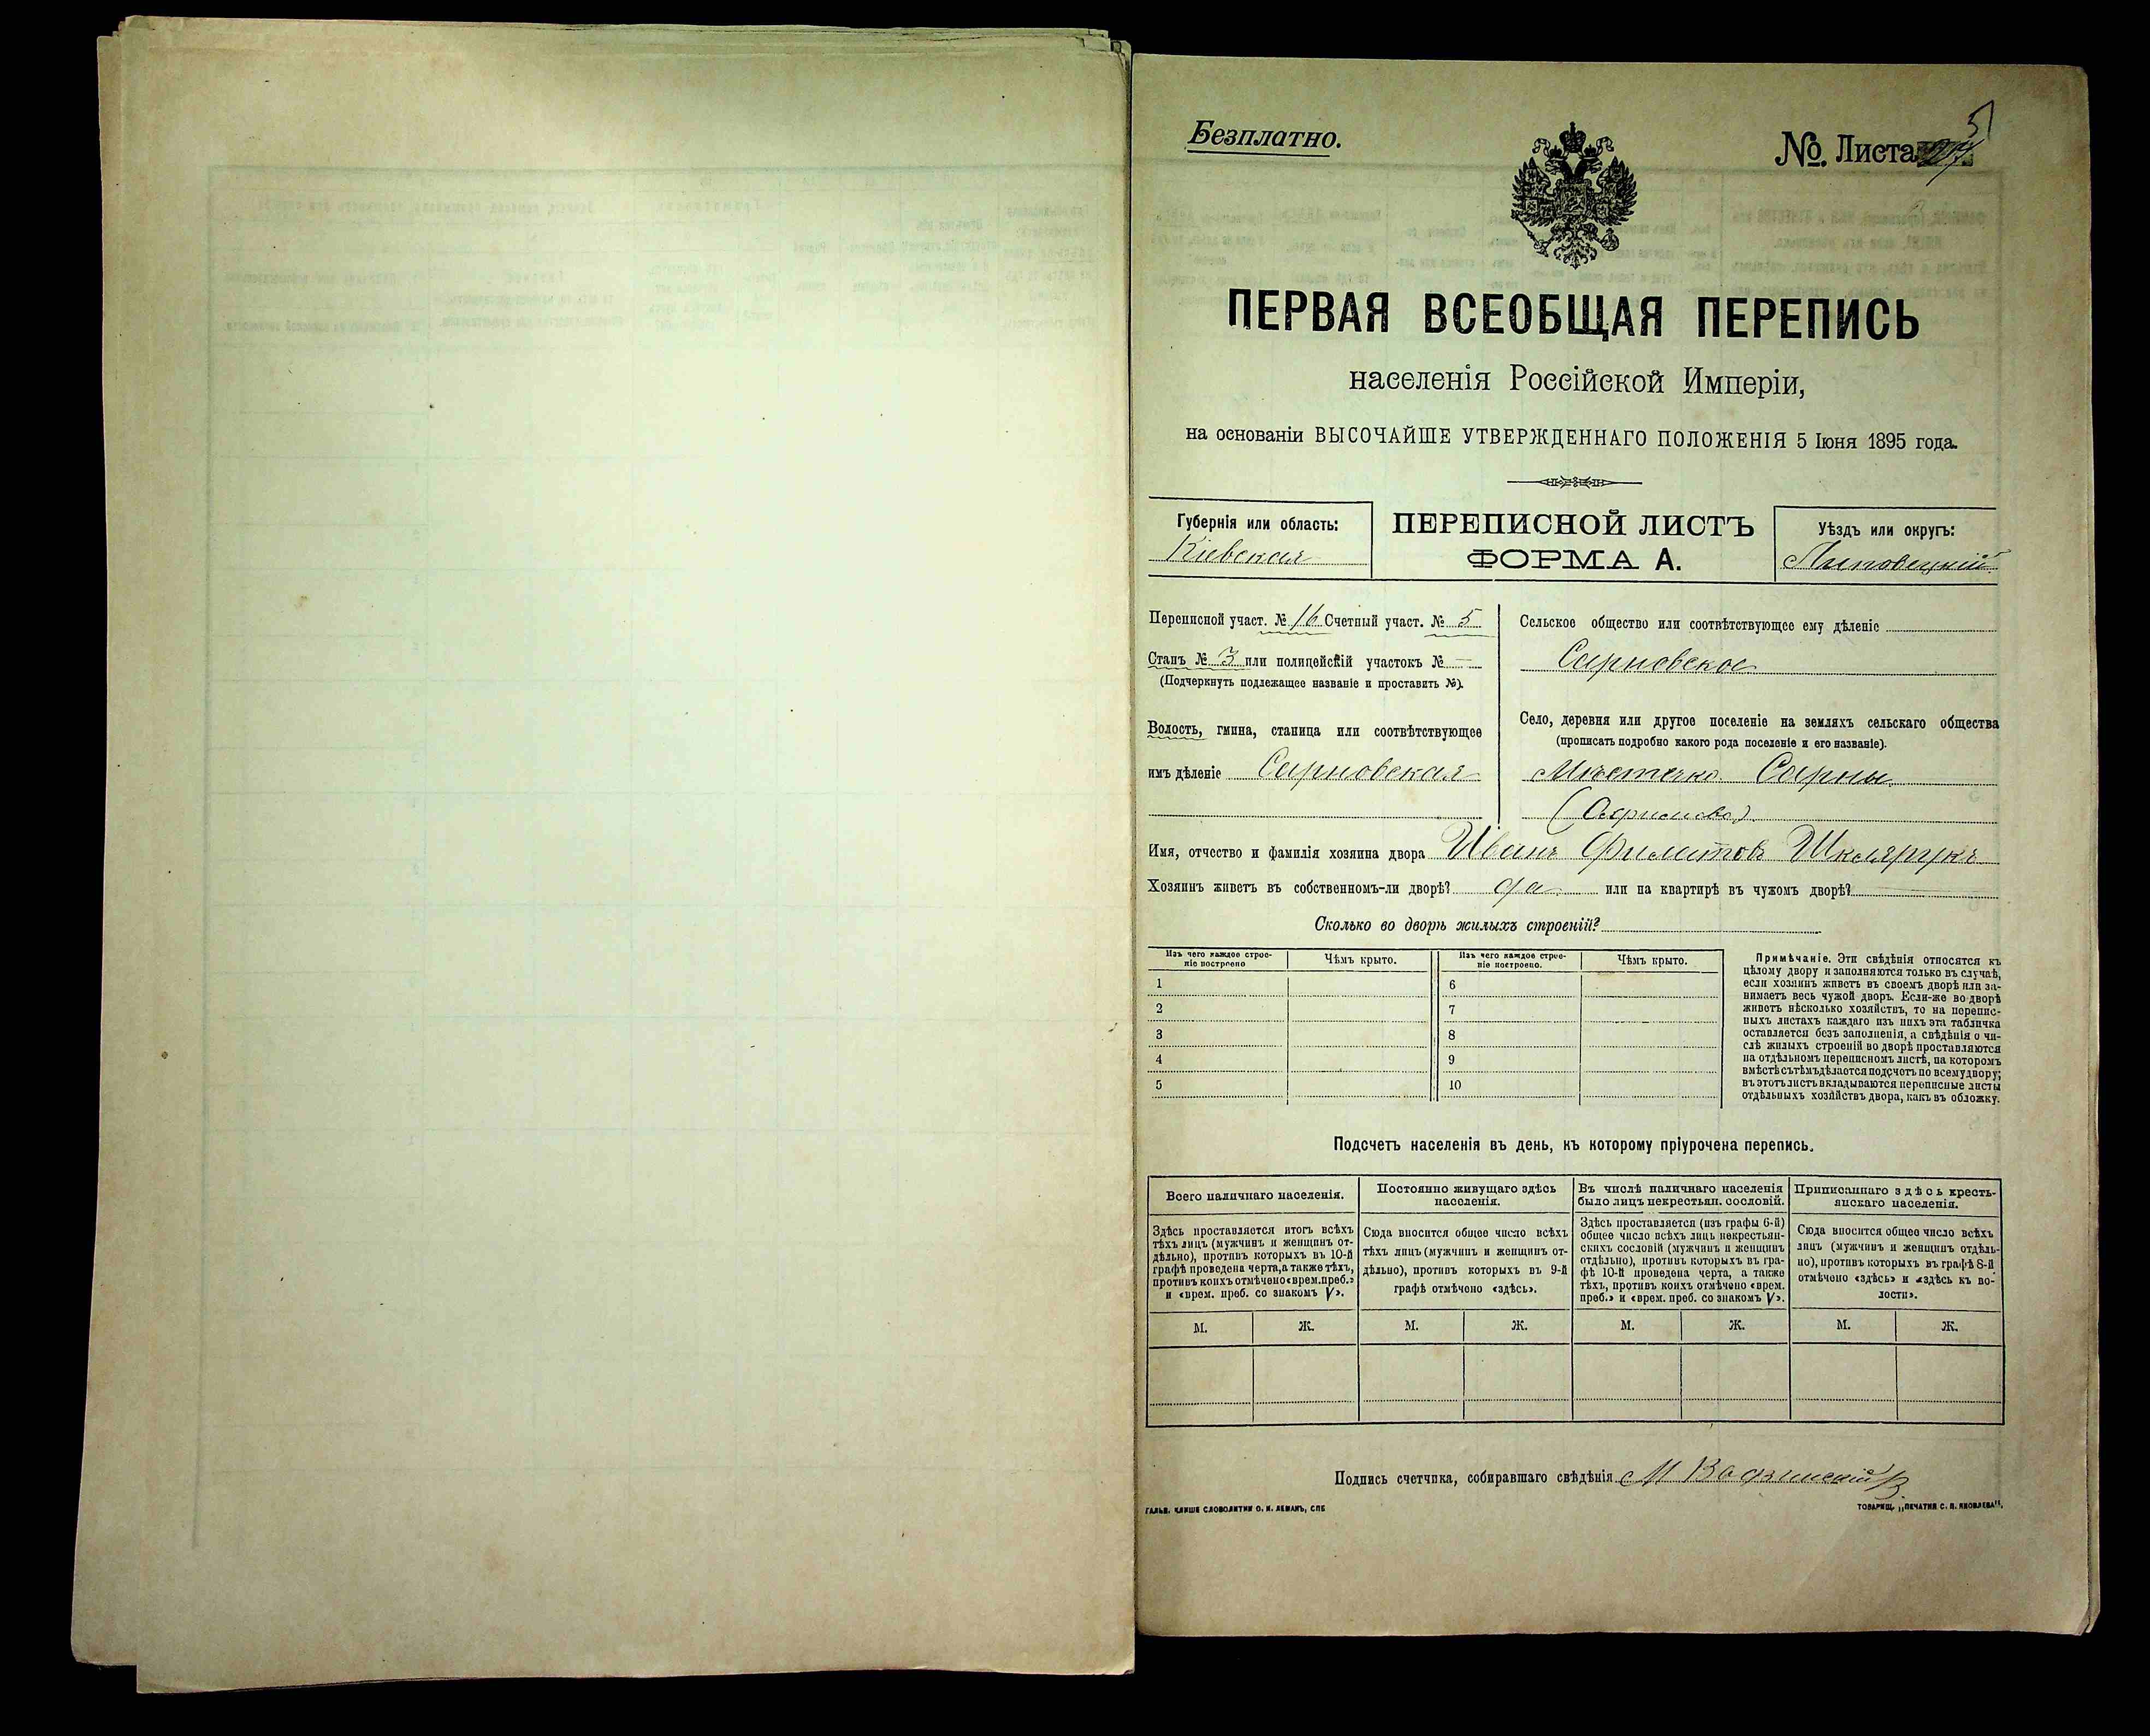 Безплатно.
№. Листа 5
ПЕРВАЯ ВСЕОБЩАЯ ПЕРЕПИСЬ
населенія Россійской Имперіи,
на основаніи ВЫСОЧАЙШЕ УТВЕРЖДЕННАГО ПОЛОЖЕНІЯ 5 Іюня 1895 года.
Губернія или область:
Кіевская
ПЕРЕПИСНОЙ ЛИСТЪ
ФОРМА А.
Уѣздъ или округъ:
Липовецкій
Переписной участ. № 16 Счетный участ. № 5
Станъ № 3 или полицейскій участокъ № —
(Подчеркнуть подлежащее названіе и проставить №).
Волость, гмина, станица или соотвѣтствующее
имъ дѣленіе Сарновская
Сельское общество или соотвѣтствующее ему дѣленіе
Сарновское
Село, деревня или другое поселеніе на земляхъ сельскаго общества
(прописать подробно какого рода поселеніе и его названіе).
Мѣстечко Сарны
Имя, отчество и фамилія хозяина двора Иванъ Филитовъ Шклярукъ
Хозяинъ живетъ въ собственномъ-ли дворѣ? да или на квартирѣ въ чужомъ дворѣ?
Сколько во дворѣ жилыхъ строеній?
Изъ чего каждое строе-
ніе построено
Чѣмъ крыто.
Изъ чего каждое строе-
ніе построено.
Чѣмъ крыто.
1
6
2
7
3
8
4
9
5
10
Примѣчаніе. Эти свѣдѣнія относятся къ
цѣлому двору и заполняются только въ случаѣ,
если хозяинъ живетъ въ своемъ дворѣ или за-
нимаетъ весь чужой дворъ. Если-же во дворѣ
живетъ нѣсколько хозяйствъ, то на перепис-
ныхъ листахъ каждаго изъ нихъ эта табличка
оставляется безъ заполненія, а свѣдѣнія о чи-
слѣ жилыхъ строеній во дворѣ проставляются
на отдѣльномъ переписномъ листѣ, на которомъ
вмѣстѣ съ тѣмъ дѣлается подсчетъ по всему двору;
въ этотъ листъ вкладываются переписные листы
отдѣльныхъ хозяйствъ двора, какъ въ обложку.
Подсчетъ населенія въ день, къ которому пріурочена перепись.
Всего наличнаго населенія.
Постоянно живущаго здѣсь
населенія.
Въ числѣ наличнаго населенія
было лицъ некрестьян. сословій.
Приписаннаго здѣсь кресть-
янскаго населенія.
Здѣсь проставляется итогъ всѣхъ
тѣхъ лицъ (мужчинъ и женщинъ от-
дѣльно), противъ которыхъ въ 10-й
графѣ проведена черта, а также тѣхъ,
противъ коихъ отмѣчено «врем. преб.»
и «врем. преб. со знакомъ V».
Сюда вносится общее число всѣхъ
тѣхъ лицъ (мужчинъ и женщинъ от-
дѣльно), противъ которыхъ въ 9-й
графѣ отмѣчено «здѣсь».
Здѣсь проставляется (изъ графы 6-й)
общее число всѣхъ лицъ некрестьян-
скихъ сословій (мужчинъ и женщинъ
отдѣльно), противъ которыхъ въ гра-
фѣ 10-й проведена черта, а также
тѣхъ, противъ коихъ отмѣчено «врем.
преб.» и «врем. преб. со знакомъ V».
Сюда вносится общее число всѣхъ
лицъ (мужчинъ и женщинъ отдѣль-
но), противъ которыхъ въ графѣ 8-й
отмѣчено «здѣсь» и «здѣсь къ во-
лости».
М.
Ж.
М.
Ж.
М.
Ж.
М.
Ж.
Подпись счетчика, собиравшаго свѣдѣнія
ГАЛЬВ. КЛИШЕ СЛОВОЛИТНИ О. И. ЛЕМАНЪ, СПБ
ТОВАРИЩ. „ПЕЧАТНЯ С. П. ЯКОВЛЕВА".